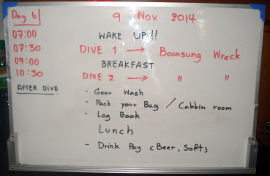 Day 6 9 Nov. 2014
07:00 WAKE UP!!
07:30 DIVE 1 → Boonsung Wreck
09:00 BREAKFAST
10:30 DIVE 2 → " "
AFTER DIVE - Gear Wash
- Pack your Bag / Cabbin room
- Log Book
Lunch
- Drink Pay (Beer, Soft)